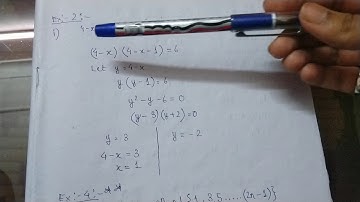 Ex:- 2:-
1)
(4-x) (4-x-1) = 6
Let y = 4-x
y (y-1) = 6
y² - y - 6 = 0
(y-3)(y+2) = 0
y = 3 y = -2
4-x = 3
x = 1
Ex:- 4:-
1.5 + 3.5.....(2n-1)}